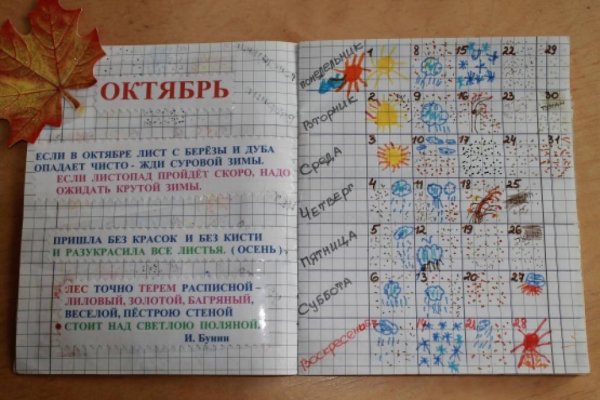 ОКТЯБРЬ
ЕСЛИ В ОКТЯБРЕ ЛИСТ С БЕРЁЗЫ И ДУБА
ОПАДАЕТ ЧИСТО - ЖДИ СУРОВОЙ ЗИМЫ.
ЕСЛИ ЛИСТОПАД ПРОЙДЁТ СКОРО, НАДО
ОЖИДАТЬ КРУТОЙ ЗИМЫ.
ПРИШЛА БЕЗ КРАСОК И БЕЗ КИСТИ
И РАЗУКРАСИЛА ВСЕ ЛИСТЬЯ. (ОСЕНЬ)
ЛЕС ТОЧНО ТЕРЕМ РАСПИСНОЙ -
ЛИЛОВЫЙ, ЗОЛОТОЙ, БАГРЯНЫЙ,
ВЕСЕЛОЙ, ПЁСТРОЮ СТЕНОЙ
СТОИТ НАД СВЕТЛОЮ ПОЛЯНОЙ.
И. Бунин
понедельник 1 8 15 22 29
Вторник 2 9 16 23 30
Среда 3 10 17 24 31
Четверг 4 11 18 25
Пятница 5 12 19 26
Суббота 6 13 20 27
Воскресенье 7 14 21 28